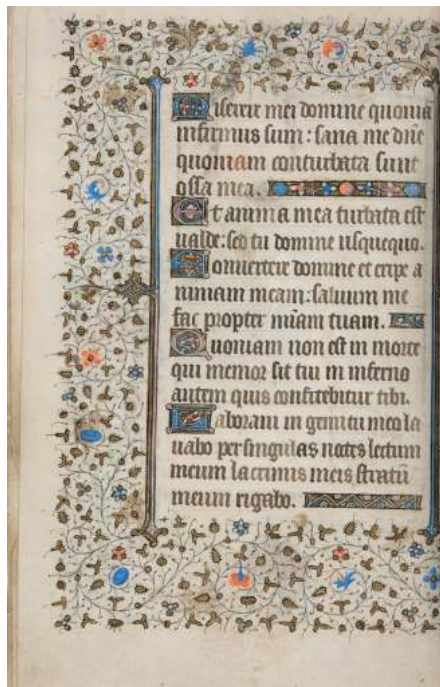 Miserere mei domine quoniā
infirmus sum: sana me dn̄e
quoniam conturbata sunt
ossa mea.
Et anima mea turbata est
ualde: sed tu domine usquequo.
Conuertere domine et eripe a
nimam meam: saluum me
fac propter m̄iam tuam.
Quoniam non est in morte
qui memor sit tui in inferno
autem quis confitebitur tibi.
Laboraui in gemitu meo la
uabo per singulas noctes lectum
meum lacrimis meis stratū
meum rigabo.